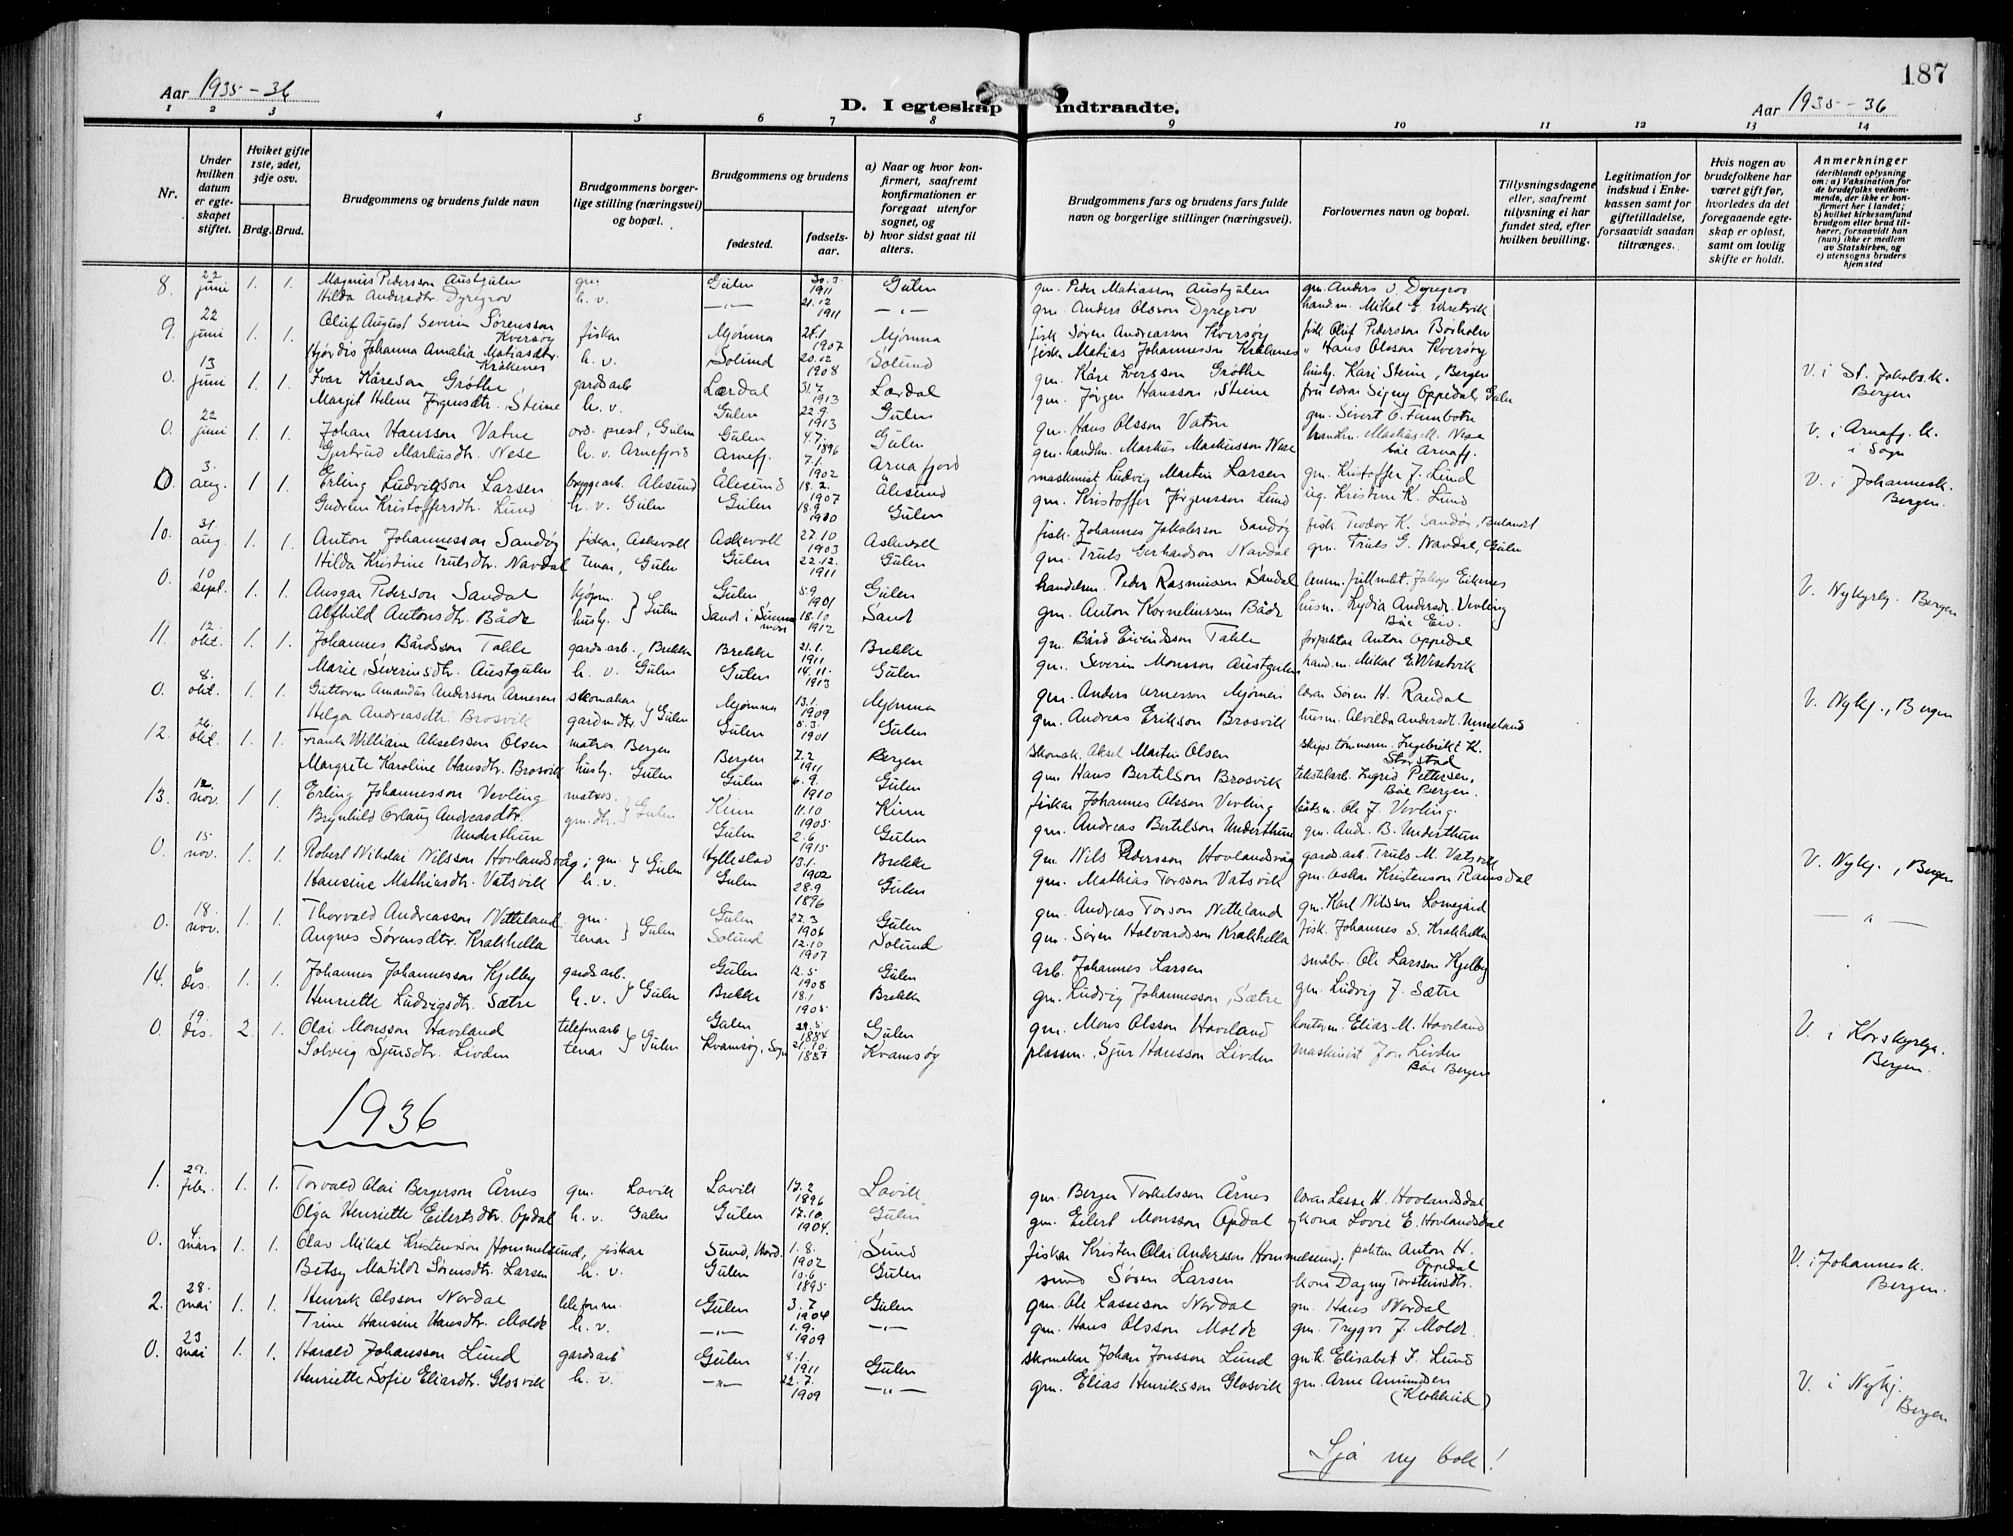 187
Aar 1935-36
D. I egteskap indtraadte.
Aar 1935-36
1 2 3 4 5 6 7 8 9 10 11 12 13 14
Nr.
Under hvilken datum er egteskapet stiftet.
Hviket gifte 1ste, 2det, 3dje osv.
Brdg. Brud.
Brudgommens og brudens fulde navn
Brudgommens borgerlige stilling (næringsvei) og bopæl.
Brudgommens og brudens
fødested.
fødselsaar.
a) Naar og hvor konfirmert, saafremt konfirmationen er foregaat utenfor sognet, og
b) hvor sidst gaat til alters.
Brudgommens fars og brudens fars fulde navn og borgerlige stillinger (næringsvei).
Forlovernes navn og bopæl.
Tillysningsdagene eller, saafremt tillysning ei har fundet sted, efter hvilken bevilling.
Legitimation for indskud i Enkekassen samt for giftetilladelse, forsaavidt saadan tiltrænges.
Hvis nogen av brudefolkene har været gift før, hvorledes da det foregaaende egteskap er opløst, samt om lovlig skifte er holdt.
Anmerkninger (deriblandt oplysning om: a) Vaksination for de brudefolks vedkommende, der ikke er konfirmert her i landet; b) hvilket kirkesamfund brudgom eller brud tilhører, forsaavidt han (hun) ikke er medlem av Statskirken, og c) utensogns bruders hjemsted
8. 22 juni 1. 1. Magnus Pedersson Austgulen gm. Gulen 30.3 1911 Gulen gm. Peder Matiasson Austgulen gm. Anders O. Dyregrov
Hilda Andersdtr. Dyregrov h. v. —"— 21.12 1911 —"— gm. Anders Olsson Dyregrov handm. Mikal E. Wisetvik
9. 22 juni 1. 1. Oluf August Severin Sørensson Kversøy fiskar Mjømna 21.1 1907 Mjømna fisk. Søren Andreasson Kversøy fisk Oluf Pedersson Borholm
Hjørdis Johanna Amalia Matiasdtr. Kråkenes h. v. Solund 20.12 1908 Solund fisk. Matias Johannesson Kråkenes " Hans Olsson Kversøy
0. 13 juni 1. 1. Ivar Kåreson Grøthe gardsarb Lærdal 31.7 1913 Lærdal gm. Kåre Iversson Grøthe hushj. Kari Steine, Bergen V. i St. Jakobs k. Bergen
Margit Helene Jørgensdtr. Steine h. v. Gulen 22.9. 1913 Gulen gm. Jørgen Hansson Steine fru læra Signy Oppedal Gulen
0. 22 juni 1. 1. Johan Hansson Vatne ord. prest, Gulen Gulen 4.7. 1896 Gulen gm. Hans Olsson Vatne gm. Sivert O.
Gjertrud Markusdtr. Nese h. v. Arnefjord Arnefj. 7.1. 1902 Arnafjord gm. handlm. Markus Markusson Nese handlm. Markus M. Nese båe Arnafj. V. i Arnafj. k. i Sogn
0. 3. aug. 1 1. Erling Ludvigson Larsen bryggearb Ålesund Ålesund 18.2. 1907 Ålesund maskinist Ludvig Martin Larsen gm. Kristoffer J. Lund V. i Johannesk. Bergen.
Gudrun Kristoffersdtr. Lund h. v. Gulen Gulen 18.9 1910 Gulen gm. Kristoffer Jørgensson Lund ug. Kristine K. Lund
10. 31. aug. 1. 1. Anton Johannesson Sandøy fiskar, Askevoll Askevoll 27.10 1903 Askevoll fisk. Johannes Jakobsson Sandøy fisk Teodor K. Sandøy, Bulandet
Hilda Kristine Trulsdtr. Navdal tenar, Gulen Gulen 22.12. 1911 Gulen gm. Truls Gerhardson Navdal gm. Truls G. Navdal, Gulen
0. 10 sept. 1. 1. Ansgar Pederson Sandal kjøpm. } Gulen Gulen 5.9 1901 Gulen handelsm. Peder Rasmusson Sandal Jakop Eikenes V. Nykyrkj. Bergen
Alfhild Antonsdtr. Både hushj. Sande i Sunnmøre 18.10 1912 Sande gm. Anton Kornelinssen Både husm. Lydia Andersdr. Verling
11. 12. okt. 1. 1. Johannes Bårdsson Takle gardsarb., Brekke Brekke 21.1. 1911 Brekke gm. Bård Eivindsson Takle forpaktar Anton Oppedal
Marie Severinsdtr. Austgulen h. v. Gulen Gulen 14.11. 1913 Gulen gm. Severin Monsson Austgulen handm. Mikal E. Wisetvik
0. 8. okt. 1. 1. Guttorm Amandus Andersson Arnesen skomakar } Gulen Mjømna 13.1. 1909 Mjømna gm. Anders Arnesson Mjømen lærar Søren H. Randal V. Nykj., Bergen
Helga Andreasdtr Brosvik gardmdtr. Gulen 5.3. 1901 Gulen gm. Andreas Erikson Brosvik husm. Alvilda Andersdt. Unneland
12. 26. okt. 1. 1. Frank William Akselsson Olsen matros Bergen Bergen 7.2 1911 Bergen Skomak. Aksel Martin Olsen skips tømmerm. Ingebrikt K. Storstad
Margrete Karoline Hansdtr. Brosvik hushj. Gulen Gulen 6.9. 1910 Gulen gm. Hans Bertilson Brosvik tekstilarb. Ingrid Pettersen, båe Bergen.
13. 12. nov. 1. 1. Erling Johannesson Verling matros. } Gulen Kinn 11.10 1905 Kinn fiskar Johannes Olsson Verling båtsm. Ole J. Verling.
Brynhild Orlaug Andreasdtr. Underthun gm.dtr. Gulen 2.6 1915 Gulen gm. Andreas Bertilson Underthun gm. Andr. B. Underthun
0. 15 nov. 1. 1. Robert Nikolai Nilsson Hovlandsvåg gm. } Gulen Hyllestad 13.1. 1902 Brekke gm. Nils Pedersson Hovlandsvåg gardsarb. Truls M. Vatsvik V. Nykj., Bergen
Hansine Mathiasdtr. Vatsvik h.v. Gulen 28.9 1896 Gulen gm. Mathias Torsson Vatsvik gm. Oskar Kristenson Ramsdal
0. 18. nov. 1. 1. Thorvald Andreasson Nitteland gm. } Gulen Gulen 27.3 1906 Gulen gm. Andreas Torson Nitteland gm. Karl Nilsson Lonegård —"—
Angnes Sørensdtr. Krakhella tenar Solund 12.10 1907 Solund gm. Søren Halvardsson Krakhella fisk. Johannes S. Krakhella
14. 6 des. 1. 1. Johannes Johannesson Kjelby gardsarb. } Gulen Gulen 12.5 1908 Gulen arb. Johannes Larsen småbr. Ole Larsson Kjelby
Henriette Ludvigsdtr. Sætre h.v. Brekke 18.1 1905 Brekke gm. Ludvig Johannesson Sætre gm. Ludvig J. Sætre
0. 19. des. 2. 1. Olai Monsson Haveland telefonarb } Gulen Gulen 29.5 1884 Gulen gm. Mons Olsson Haveland kontorm. Elias M. Haveland V. i Korskyrkja. Bergen.
Solveig Sjursdtr. Livden tenar Kvamsøy, Sogn 21.10. 1887 Kvamsøy plassm. Sjur Hansson Livden maskinist Jon Livden båe Bergen
1936
1. 29. febr. 1. 1. Torvald Olai Bergerson Årnes gm. Lavik Lavik 17.2 1896 Lavik gm. Berger Torkelsson Årnes lærar Lasse H. Hovlandsdal
Olga Henriette Eilertsdtr. Opdal h. v. Gulen Gulen 17.10. 1904. Gulen gm. Eilert Monsson Opdal kona Lovie E. Hovlandsdal
0. 1. mars 1. 1. Olav Mikal Kristensson Hommelsund, fiskar Sund, Hord. 1.8. 1902 Sund fiskar Kristen Olai Andersson Hommelsund; politm Anton H. Oppedal V. i Johannesk. Bergen.
Betsy Matilde Sørensdtr. Larsen h. v. Gulen 10.6 1895 Gulen smed Søren Larsen kona Dagny Torsteinsdtr.
2. 28. mai 1. 1. Henrik Olsson Nordal telefonm. Gulen 3.7 1904 Gulen gm. Ole Lasseson Nordal gm. Hans Nordal
Trine Hansine Hansdtr. Molde h. v. —"— 1.9. 1909 —"— gm. Hans Olsson Molde gm. Trygve J. Molde.
0. 23 mai 1. 1. Harald Johansson Lund gardsarb Gulen 8.1. 1911 Gulen skomakar Johan Jonsson Lund gm k. Elisabet I. Lund
Henriette Sofie Eliasdtr. Glosvik h. v. —"— 22.7. 1909 —"— gm. Elias Henriksson Glosvik gm. Arne Amundsen (Klokkeid) V. i Nykj. Bergen
Sjå ny bok!